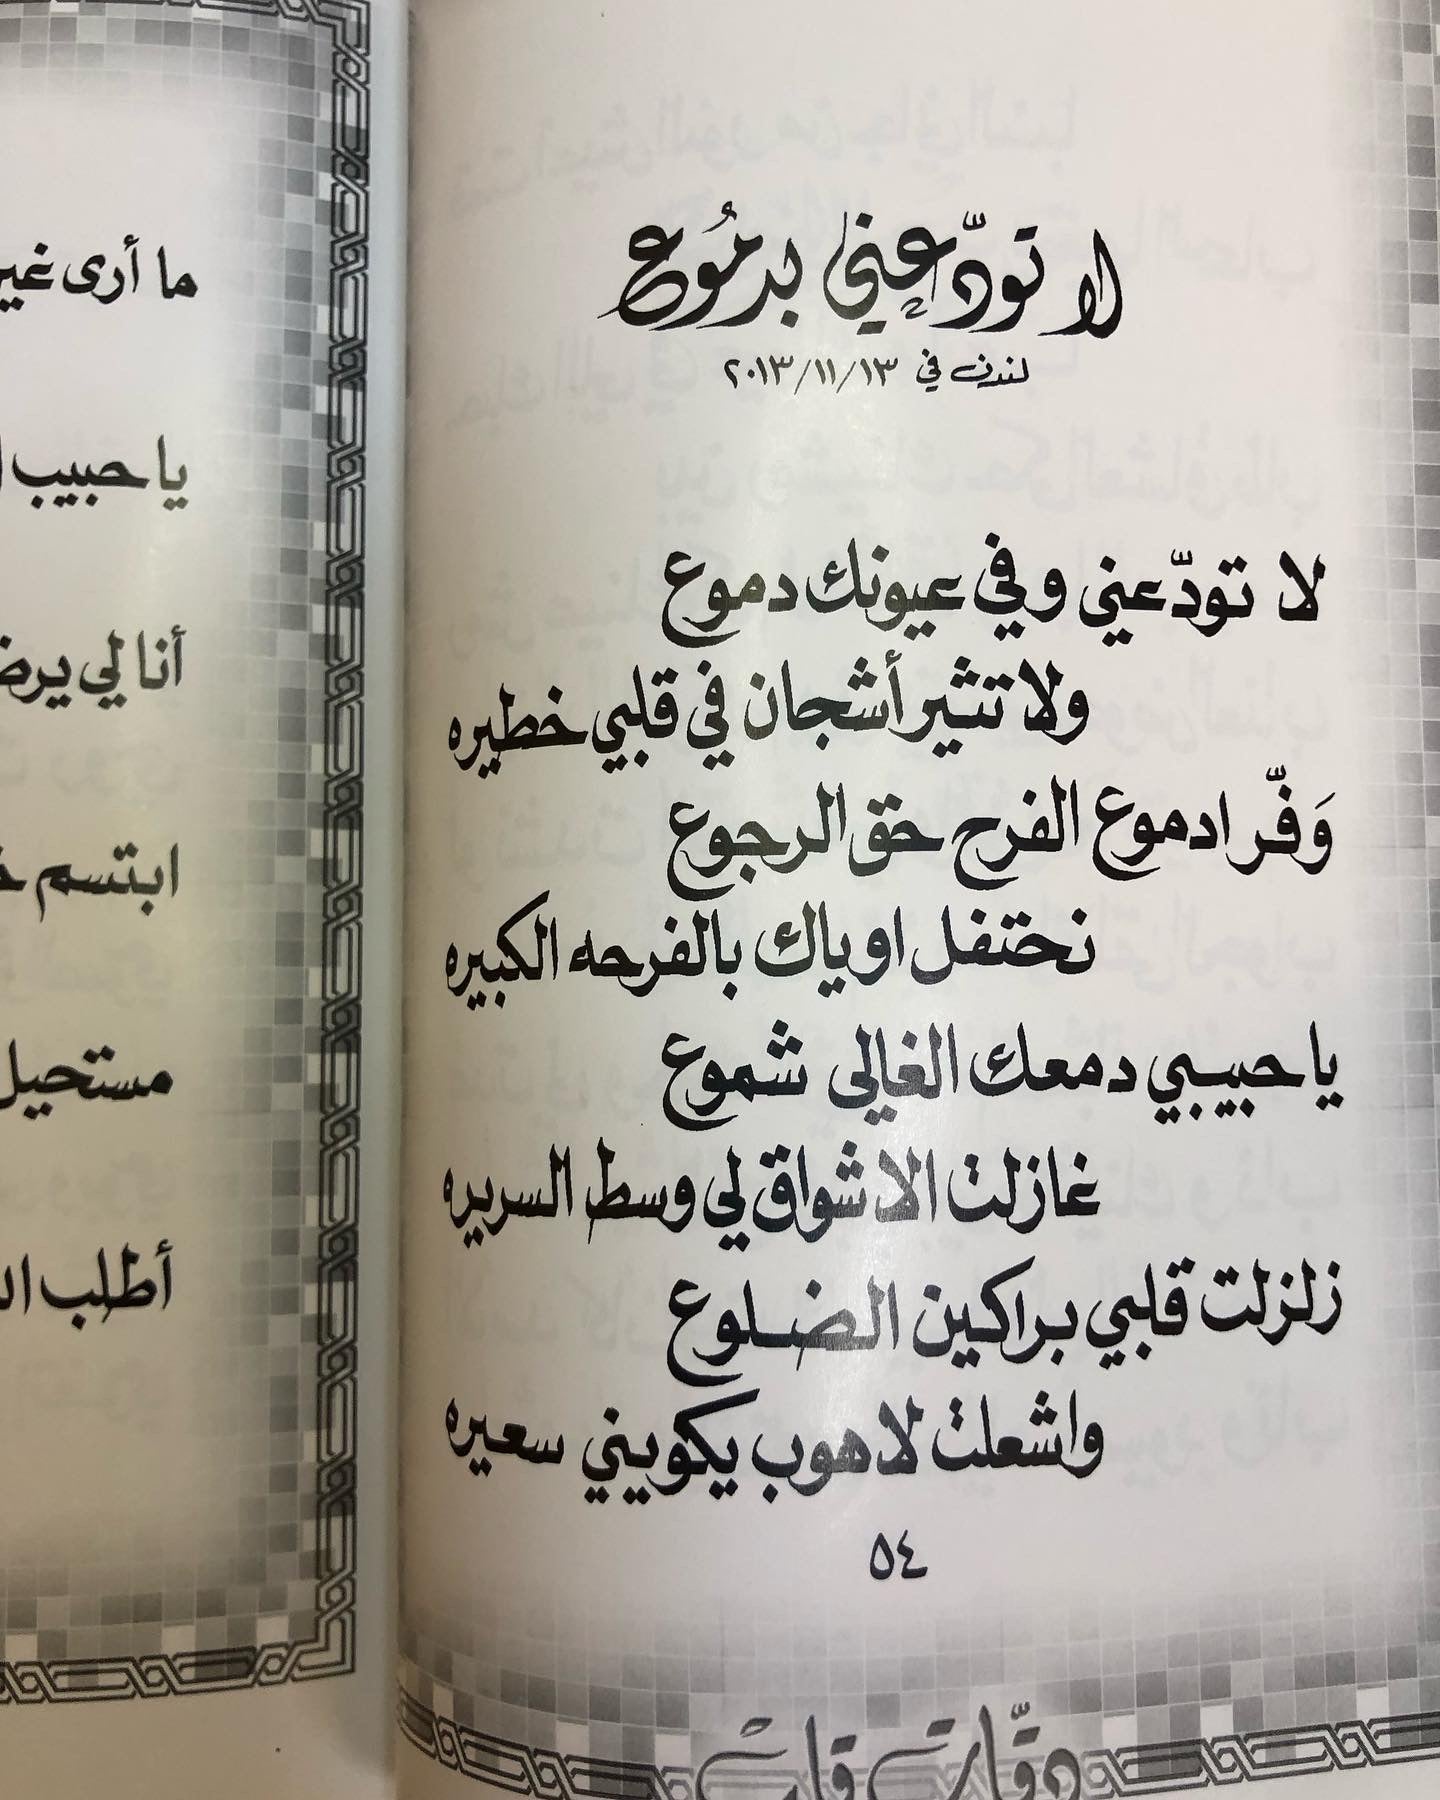 لا تودّعني بدمُوع
لندن في ٢٠١٣/١١/١٣
لا تودّعني وفي عيونك دموع
ولا تثير أشجان في قلبي خطيره
وَفّر ادموع الفرح حق الرجوع
نحتفل اوياك بالفرحه الكبيره
يا حبيبي دمعك الغالي شموع
غازلت الاشواق لي وسط السريره
زلزلت قلبي براكين الضلوع
واشعلت لاهوب يكويني سعيره
٥٤
دقّات قلب
ما أرى غير
يا حبيب
أنا لي يرض
ابتسم
مستحيل
أطلب